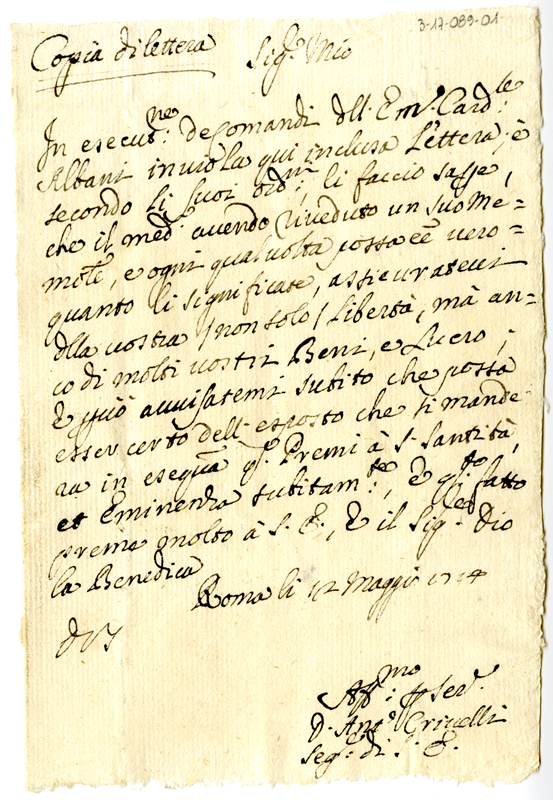 3-17-089-01
Copia di lettera Sig.r Mio
In esecut.ne: de Comandi dll. Em.o Card.le:
Albani invio la qui inclusa lettera, è
secondo li suoi ord.ni, li faccio sapere,
che il med.o avendo riveduto un suo Me=
mole, e ogni qualvolta possa eẽ vero=
quanto li significate, assicuratevi
dlla vostra /non solo/ Libertà, mà an=
co di molti vostri Beni, e Lucro;
E può avvisatemi subito che possa
esser certo dell. esposto che si mande
ra in esegũa Premi à S. Santità,
et Eminenza subitam.te:, è fatto
preme molto à S. E., E il Sig.re Dio
la Benedica
Roma li 12 Maggio 1714
dVS
Aff.mo: Ser.r
D. Ant.o Crivelli
Seg.o di S. E.